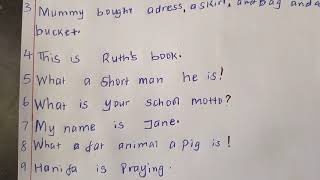 3 Mummy bought adress, a skirt, and bag and a
bucket.
4 This is Ruth's book.
5 What a short man he is!
6 What is your school motto?
7 My name is Jane.
8 What a fat animal a pig is!
9 Hanifa is Praying.